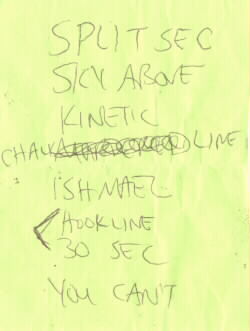 SPLIT SEC
SKY ABOVE
KINETIC
CHALK LINE
ISHMAEL
HOOKLINE
30 SEC
YOU CAN'T